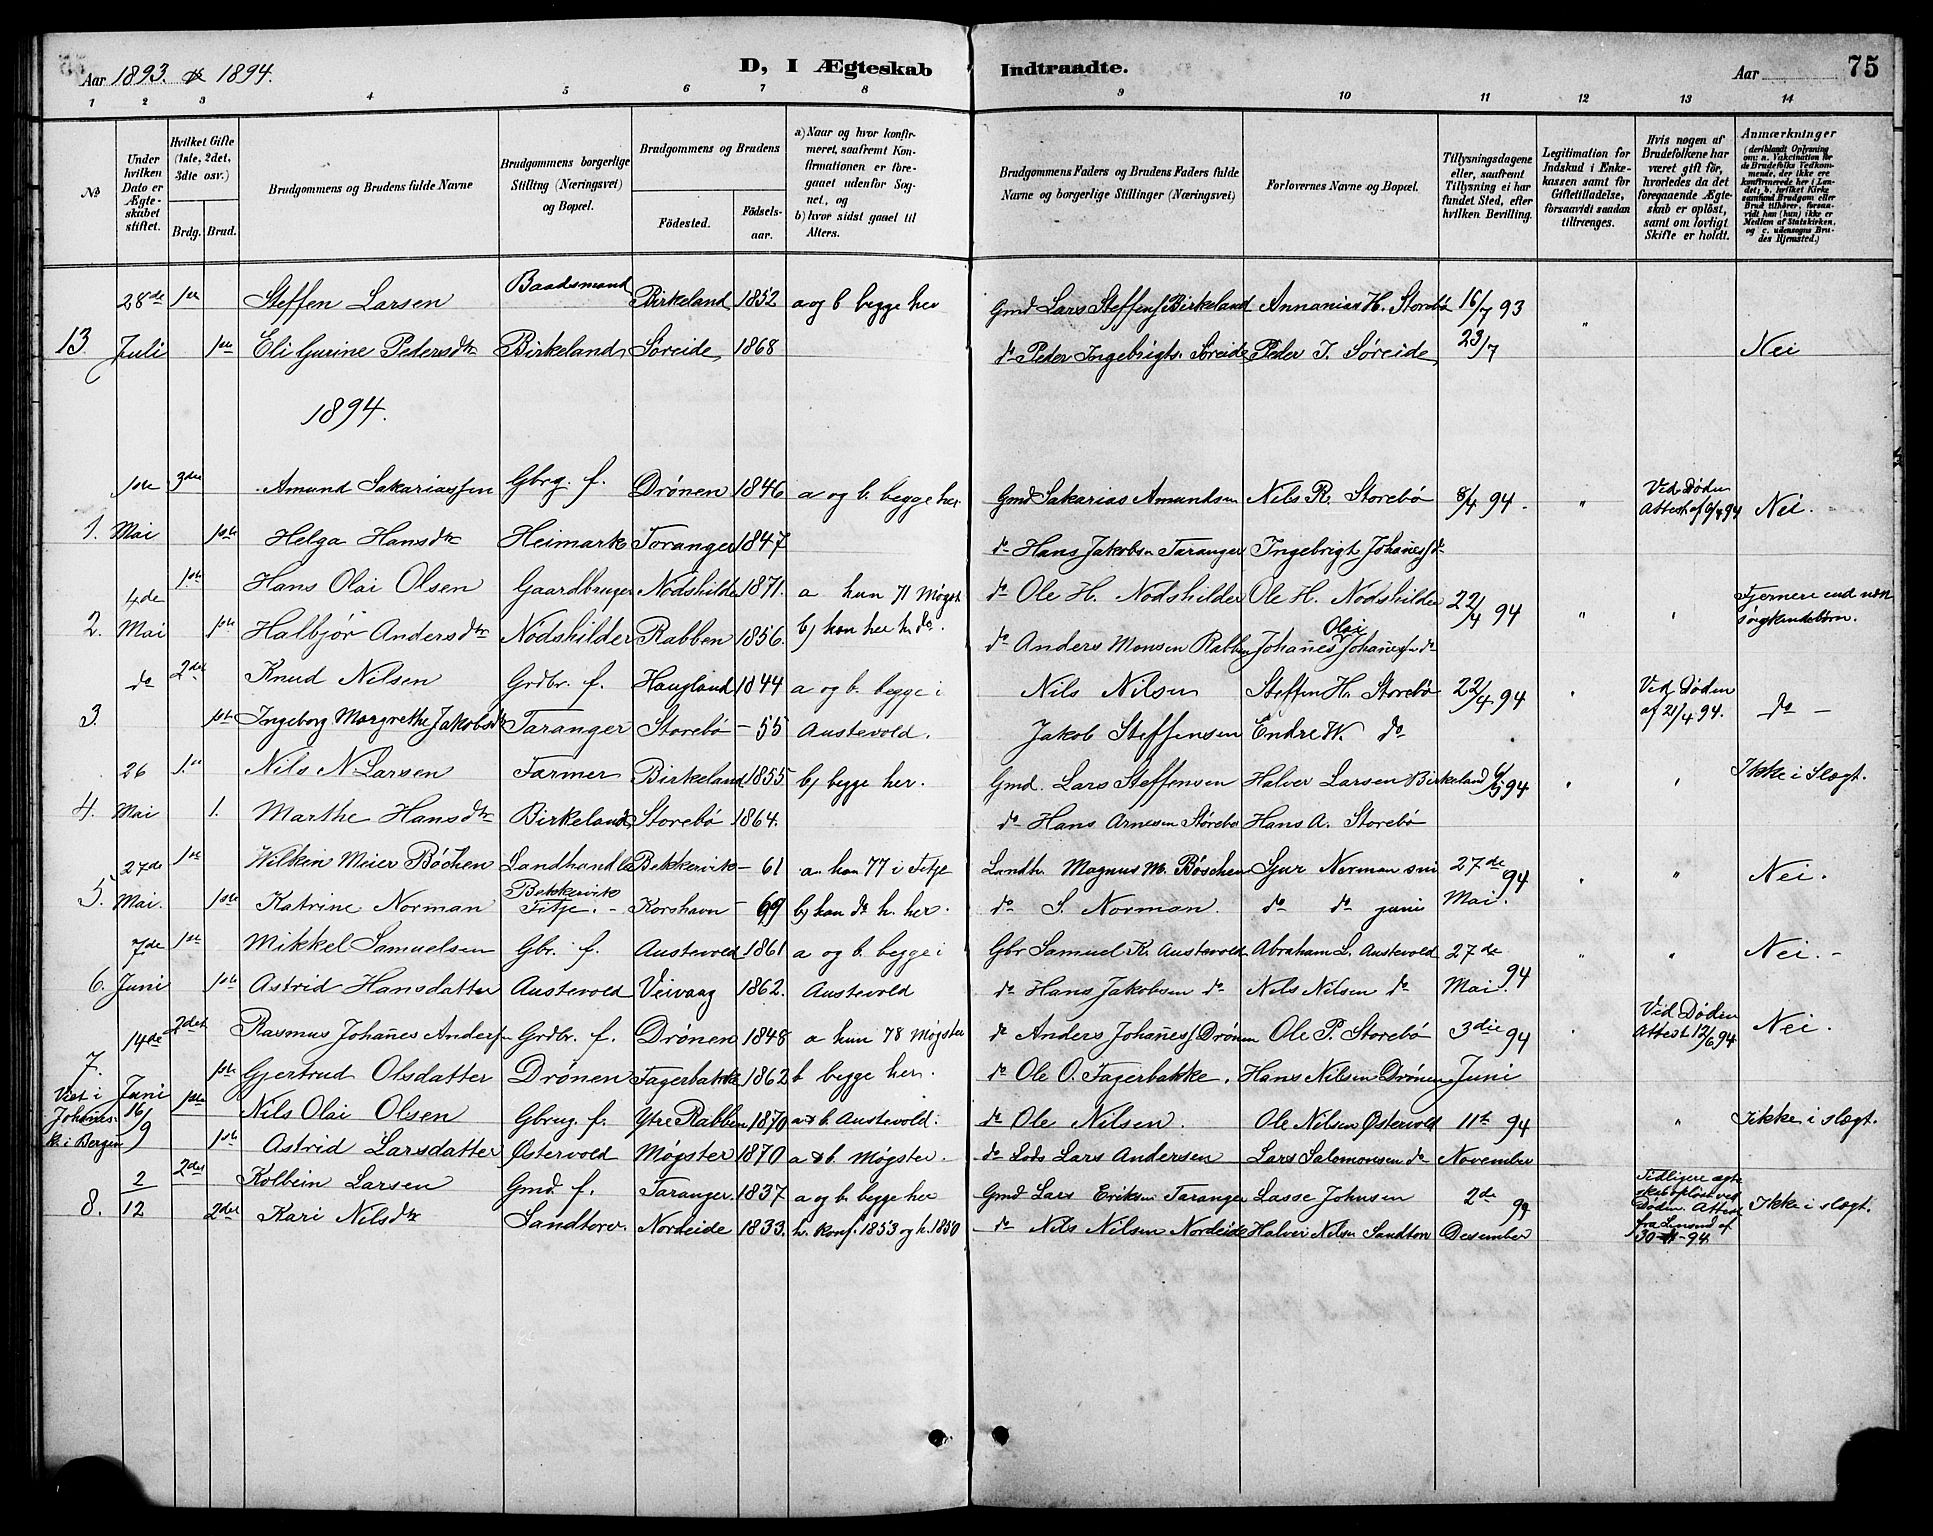 Aar 1893. & 1894.
D, I Ægteskab
Indtraadte.
Aar
75
1 2 3 4 5 6 7 8 9 10 11 12 13 14
No
Under hvilken Dato er Ægteskabet stiftet.
Hvilket Gifte (1ste, 2det, 3die osv.)
Brdg. Brud.
Brudgommens og Brudens fulde Navne
Brudgommens borgerlige Stilling (Næringsvei) og Bopæl.
Brudgommens og Brudens
Fødested.
Fødselsaar.
a) Naar og hvor konfirmeret, saafremt Konfirmationen er foregaaet udenfor Sognet, og
b) hvor sidst gaaet til Alters.
Brudgommens Faders og Brudens Faders fulde Navne og borgerlige Stillinger (Næringsvei)
Forlovernes Navne og Bopæl.
Tillysningsdagene eller, saafremt Tillysning ei har fundet Sted, efter hvilken Bevilling.
Legitimation for Indskud i Enkekassen samt for Giftetilladelse, forsaavidt saadan tiltrænges.
Hvis nogen af Brudefolkene har været gift før, hvorledes da det foregaaende Ægteskab er opløst, samt om lovligt Skifte er holdt.
Anmærkninger (deriblandt Oplysning om: a. Vakcination for de Brudefolks Vedkommende, der ikke ere konfirmerede her i Landet; b. hvilket Kirkesamfund Brudgom eller Brud tilhører, forsaavidt han (hun) ikke er Medlem af Statskirken, og c. udensogns Brudes Hjemsted.)
28de 1ste Steffen Larsen Baadsmand Birkeland 1852 a og b begge her Gmd Lars Steffens. Birkeland Annanias H. Storebø 16/7 93 "
13. Juli 1ste Eli Gurine Pedersdtr Birkeland Søreide 1868 do Peder Ingebrigts. Søreide Peder I. Søreide 23/7 Nei
1894.
1ste 3die Amund Sakariassen Gbrg. f. Drönen 1846 a og b. begge her Gmd Sakarias Amundsen Nils R. Storebø 8/4 94. " Ved Døden Attest af 6/4 94 Nei.
1. Mai 1ste Helga Hansdtr Heimark Toranger 1847 do Hans Jakobsn Taranger Ingebrigt Johanes. do
4de 1ste Hans Olai Olsen Gaardbruger Nodshilder 1871. a hun 71 Møgst. do Ole H. Nodshilder Ole H. Nodshilder 22/4 94 " " Fjernere end næst
2. Mai 1ste Halbjør Andersdtr Nodshilder Rabben 1856. b) han her h. do. do Anders Monsen Rabben Johanes Olai Johanes. do søgskendebørn.
do 2det Knud Nilsen Grdbr. f. Haugland 1844 a og b. begge i Nils Nilsen Steffen H. Storebø 22/4 94 " Ved Døden af 21/4 94. do -
3. 1ste Ingeborg Margrethe Jakobsd Taranger Storebø - 55 Austevold. Jakob Steffensen Endre W. do
26 1ste Nils N. Larsen Farmer Birkeland 1855 b) begge her. Gmd. Lars Steffensen Halver Larsen Birkeland 6/5 94 " " Ikke i Slægt.
4. Mai 1. Marthe Hansdtr Birkeland Storebø 1864. do Hans Arnesen Storebø Hans A. Storebø
27de 1ste Wilkin Meier Bøchen Landhandle Bekkervik - 61 a. han 77 i Fitje Landh. Magnus M. Bøschen Sjur Norman sni 27de 94 " " Nei.
5. Mai. 1ste Katrine Norman Bekkervik Fitje. Korshavn - 69 b) han do h. her. do S. Norman. do do juni Mai.
7de 1ste Mikkel Samuelsen Gbr. f. Austevold 1861 a og b. begge i Gbr Samuel K. Austevold Abraham L. Austevold 27de " " Nei. -
6. Juni 1ste Astrid Hansdatter Austevold Veivaag 1862. Austevold do Hans Jakobsen do Nils Nilsen do Mai. 94
14de 2det Rasmus Johanes Anders. Grdbr. f. Drönen 1848 a hun 78 Møgster do Anders Johanes. Drönen Ole P. Storebø 3die 94 " Ved Døden Attest. 12/6 94 Nei.
7. Juni 1ste Gjertrud Olsdatter Drönen Fagerbakke 1862 b begge her. do Ole O. Fagerbakke. Hans Nilsen Drönen Juni
Viet i Johanesk. i Bergen 16/9 1ste Nils Olai Olsen Gbrug. f. Ytre Rabben 1870 a & b. Austevold. do Ole Nilsen. Ole Nilsen Østervold 11te 94 " Ikke i slægt.
1ste Astrid Larsdatter Østervold Møgster 1870 a & b. Møgster. do Lods Lars Andersen Lars Salomonsen do November
2/12 2det Kolbein Larsen Gmd. f. Taranger. 1837 a og b. begge her Gmd Lars Eriksen Taranger Lasse Johnsen 2de 94 Tidligere ægteskab opløst ved Døden. Attest fra Lensmd af 30-11-94. Ikke i slægt.
8. 2det Kari Nilsdtr Sandtorv. Nordeide 1833. h. konf. 1853 og h. 1850 do Nils Nilsen Nordeide Halver Nilsen Sandtorv Desember